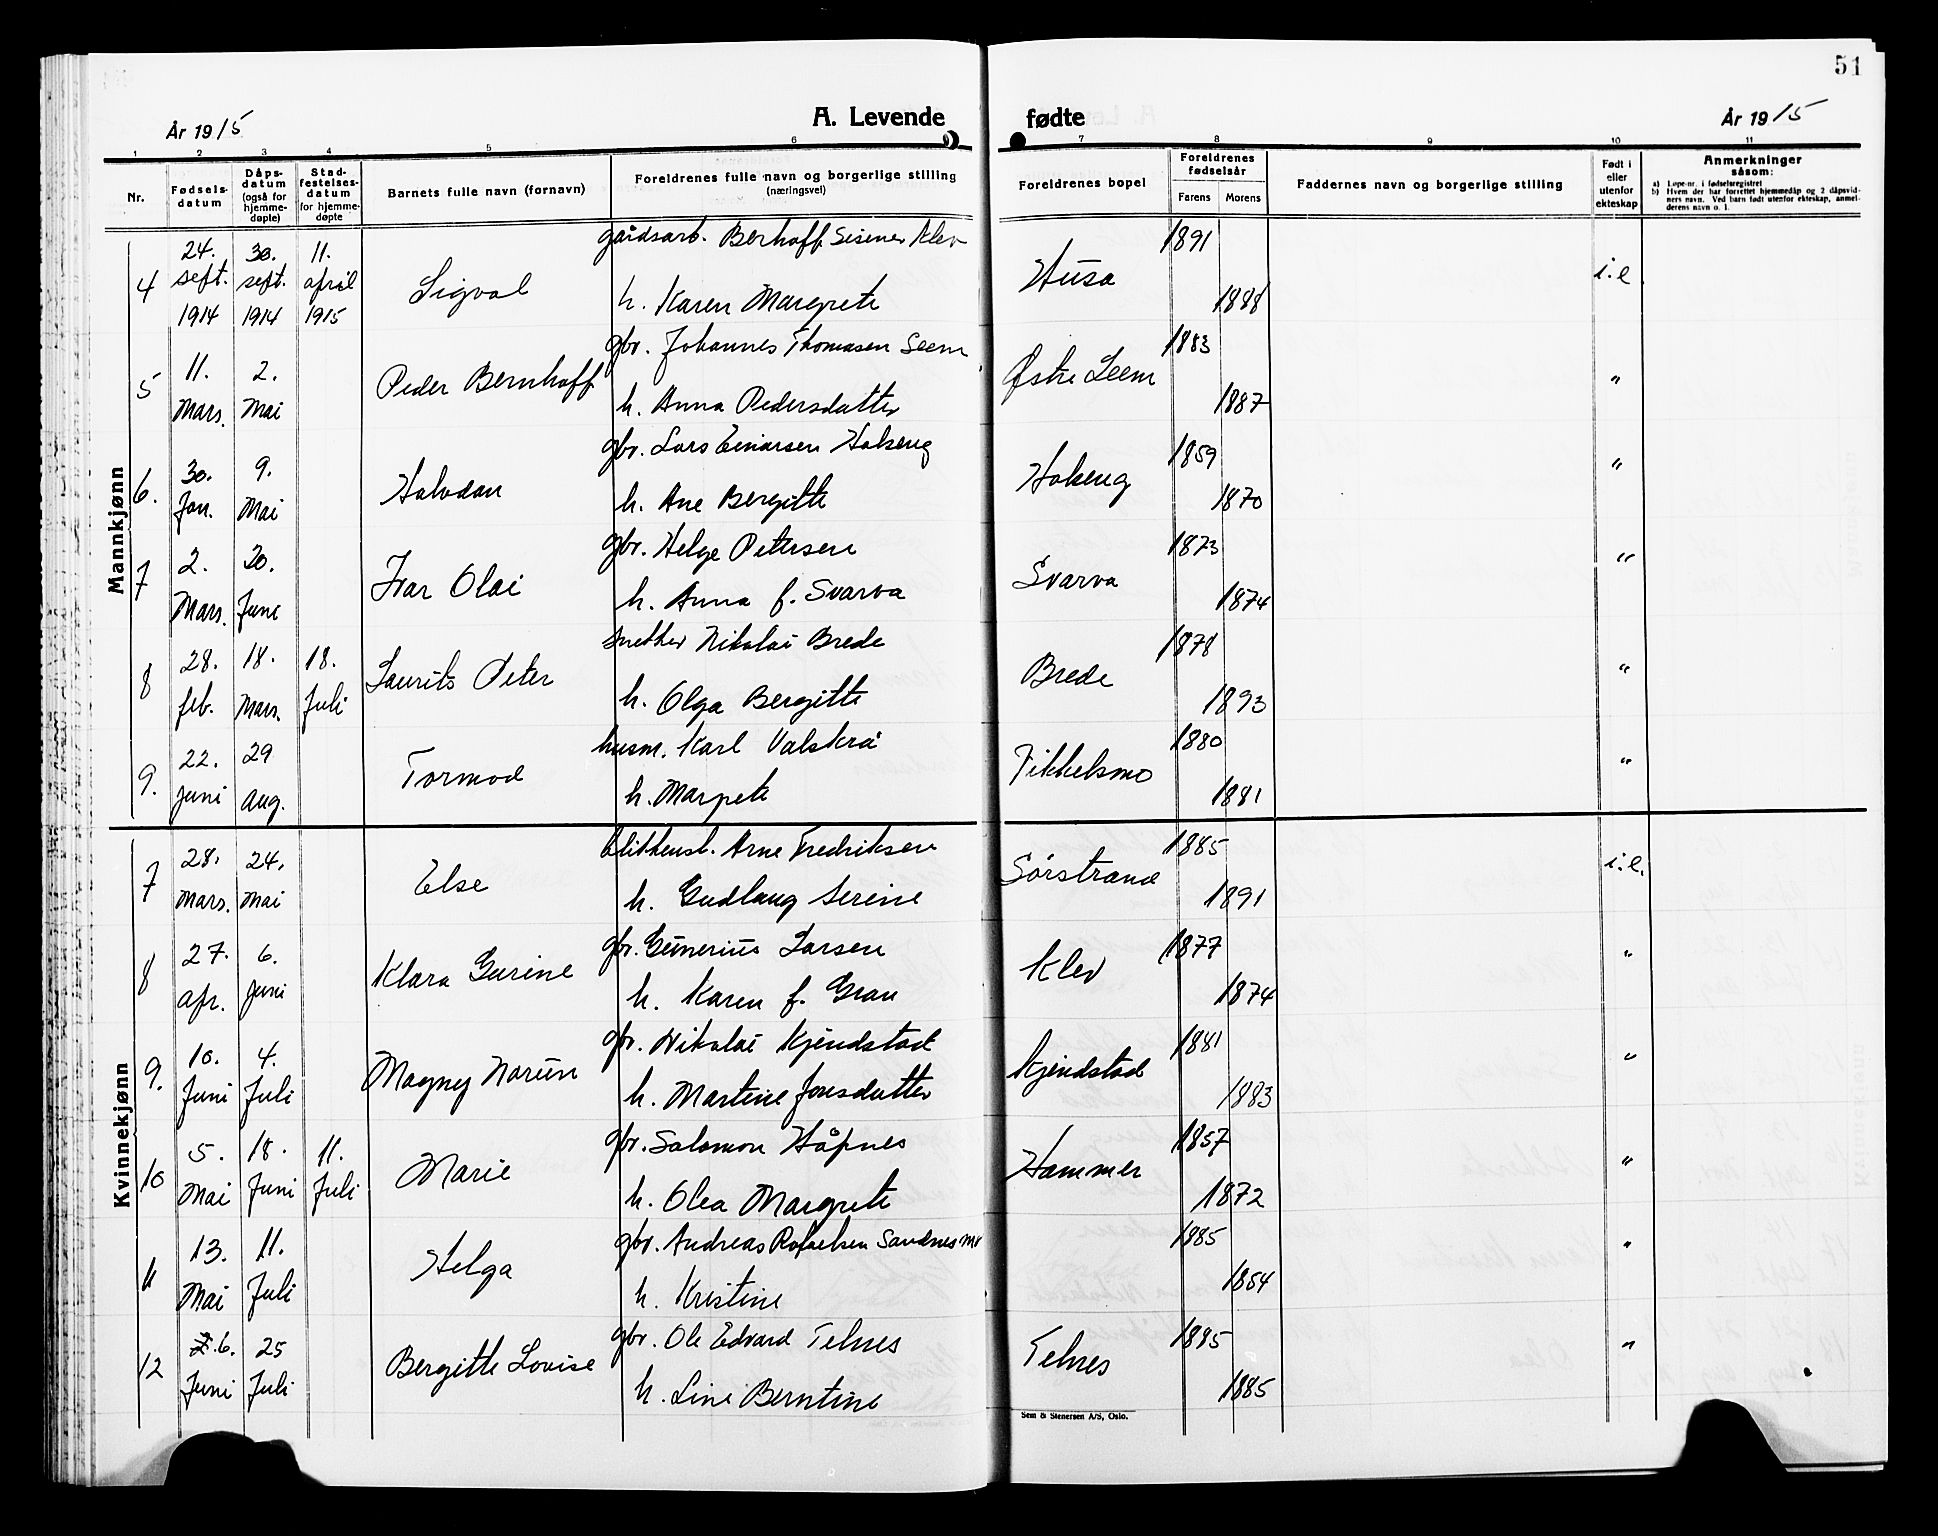 51
År 1915
A. Levende fødte
År 1915
1 2 3 4 5 6 7 8 9 10 11
Nr.
Fødsels-datum
Dåps-datum (også for hjemme-døpte)
Stad-festelses-datum for hjemme-døpte
Barnets fulle navn (fornavn)
Foreldrenes fulle navn og borgerlige stilling (næringsvei)
Foreldrenes bopel
Foreldrenes fødselsår
Farens Morens
Faddernes navn og borgerlige stilling
Født i eller utenfor ekteskap
Anmerkninger såsom:
a) Løpe-nr. i fødselsregistret
b) Hvem der har forrettet hjemmedåp og 2 dåpsvid-
ners navn. Ved barn født utenfor ekteskap, anmel-
derens navn o. l.
Mannkjønn
4 24. sept. 1914 30. sept. 1914 11. april 1915 Sigval gårdsarb. Berhoff Klev Husa 1891 i.e.
h. Karen Margrete 1888
5 11. Mars. 2. Mai Peder Bernhoff gbr. Johannes Thomasen Seem Østre Seem 1883 "
h. Anna Pedersdatter 1887
6. 30. Jan. 9. Mai Halvdan gbr. Lars Einarsen Hokeng Hokeng 1859 "
h. Ane Bergitte 1870
7 2. Mars. 20. Juni Ivar Olai gbr. Helge Petersen Svarva 1873 "
h. Anna f. Svarva 1874
8 28. feb. 18. Mars. 18. Juli Laurits Peter snekker Nikolai Brede Brede 1878 "
h. Olga Bergitte 1893
9. 22. juni 29 aug. Tormod husm. Karl Valskrå Fikkelsmo 1880 "
h. Margrete 1881
Kvinnekjønn
7 28. Mars. 24. Mai Else blikkensl. Arne Fredriksen Sørstrand 1885 i.e.
h. Gudlaug Serine 1891
8 27. apr. 6. juni Klara Gurine gbr. Gunerius Larsen Klev 1877 "
h. Karen f. Gran 1874
9. 10. Juni 4. Juli Magny Norun gbr. Nikolai Kjendstad Kjendstad 1881 "
h. Martine Jonsdatter 1883
10 5. Mai 18. Juni 11. Juli Marie gbr. Salomon Håpnes Hammer 1857 "
h. Olea Margrete 1872
11 13. Mai 11. Juli Helga gbr. Andreas Rafaelsen Sandnesmo 1885 "
h. Kristine 1854
12 6. Juni 25 Juli Bergitte Lovise gbr. Ole Edvard Telnes Telnes 1885 "
h. Line Berntine 1885
Sem & Stenersen A/S, Oslo.